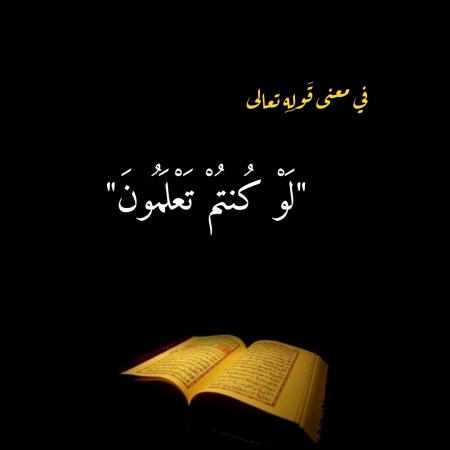 في معنى قَولِهِ تعالى
"لَوْ كُنتُمْ تَعْلَمُونَ"